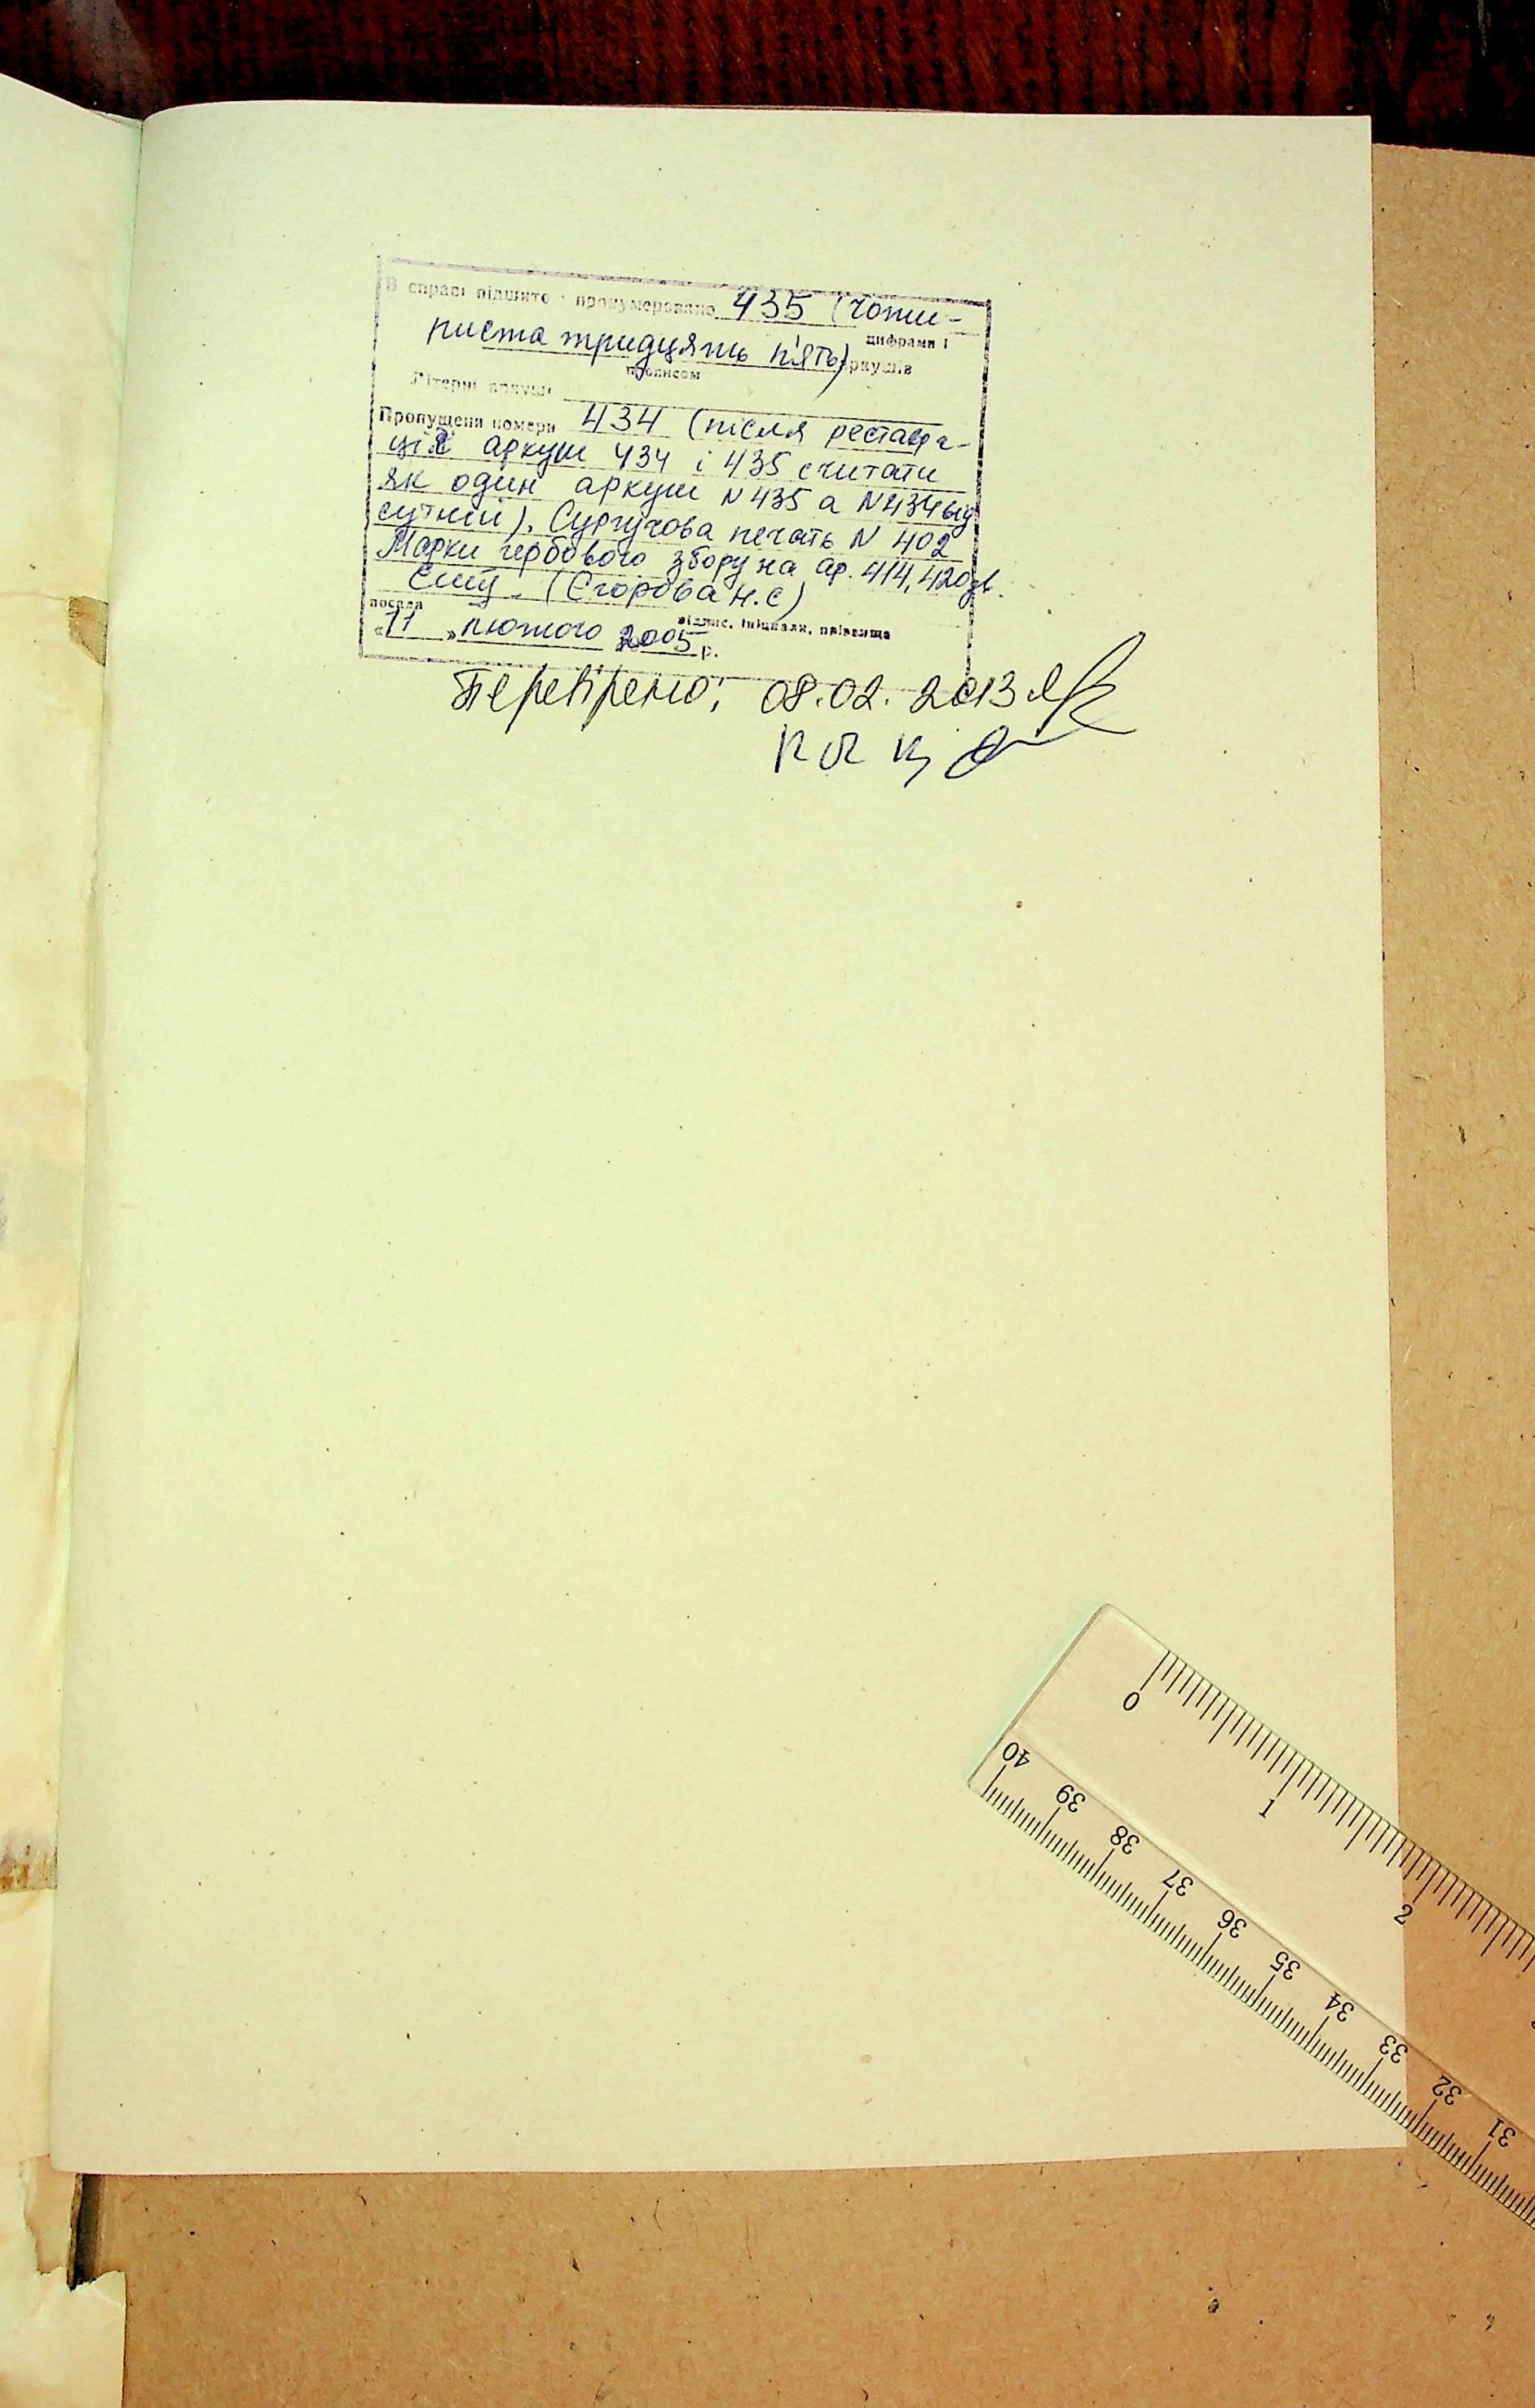 В справі підшито і пронумеровано 435 (чоти-
цифрами і
риста тридцять п'ять) аркушів
прописом
Літерні аркуші
Пропущени номери 434 (після реставра-
ції аркуш 434 і 435 считати
як один аркуш N 435 а N 434 від
сутній). Сургучова печать N 402
Марки гербового збору на ар. 414, 420 зв.
(Єгорова Н.С)
посада підпис, ініціали, прізвище
"11" лютого 2005 р.
Перевірено: 08.02.2013
0 1 2
40 39 38 37 36 35 34 33 32 31